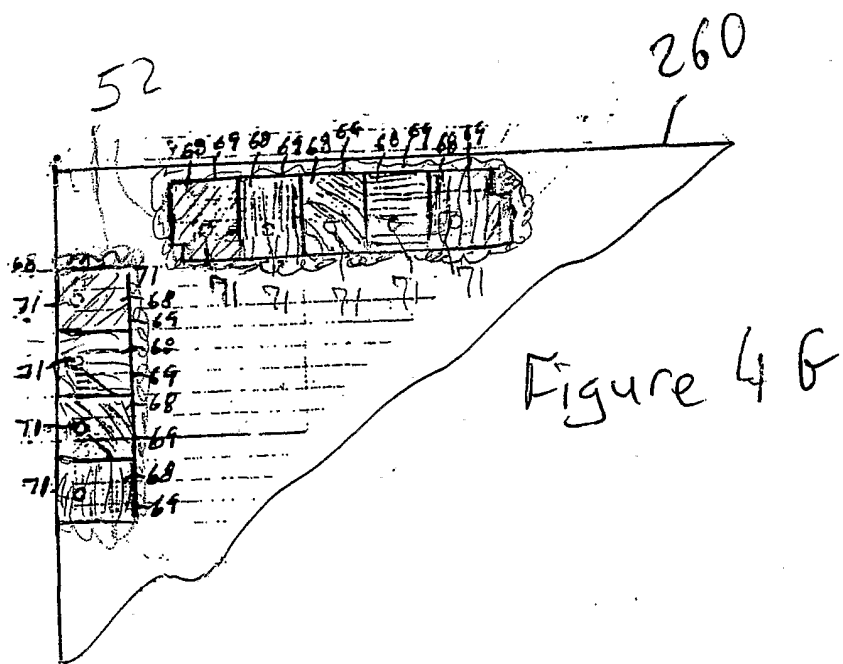 260
52
68 69 68 69 68 69 68 69 68 69
71 71 71 71 71
68 71
71 68
69
68
71 69
68
71 69
68
71 69
Figure 4G